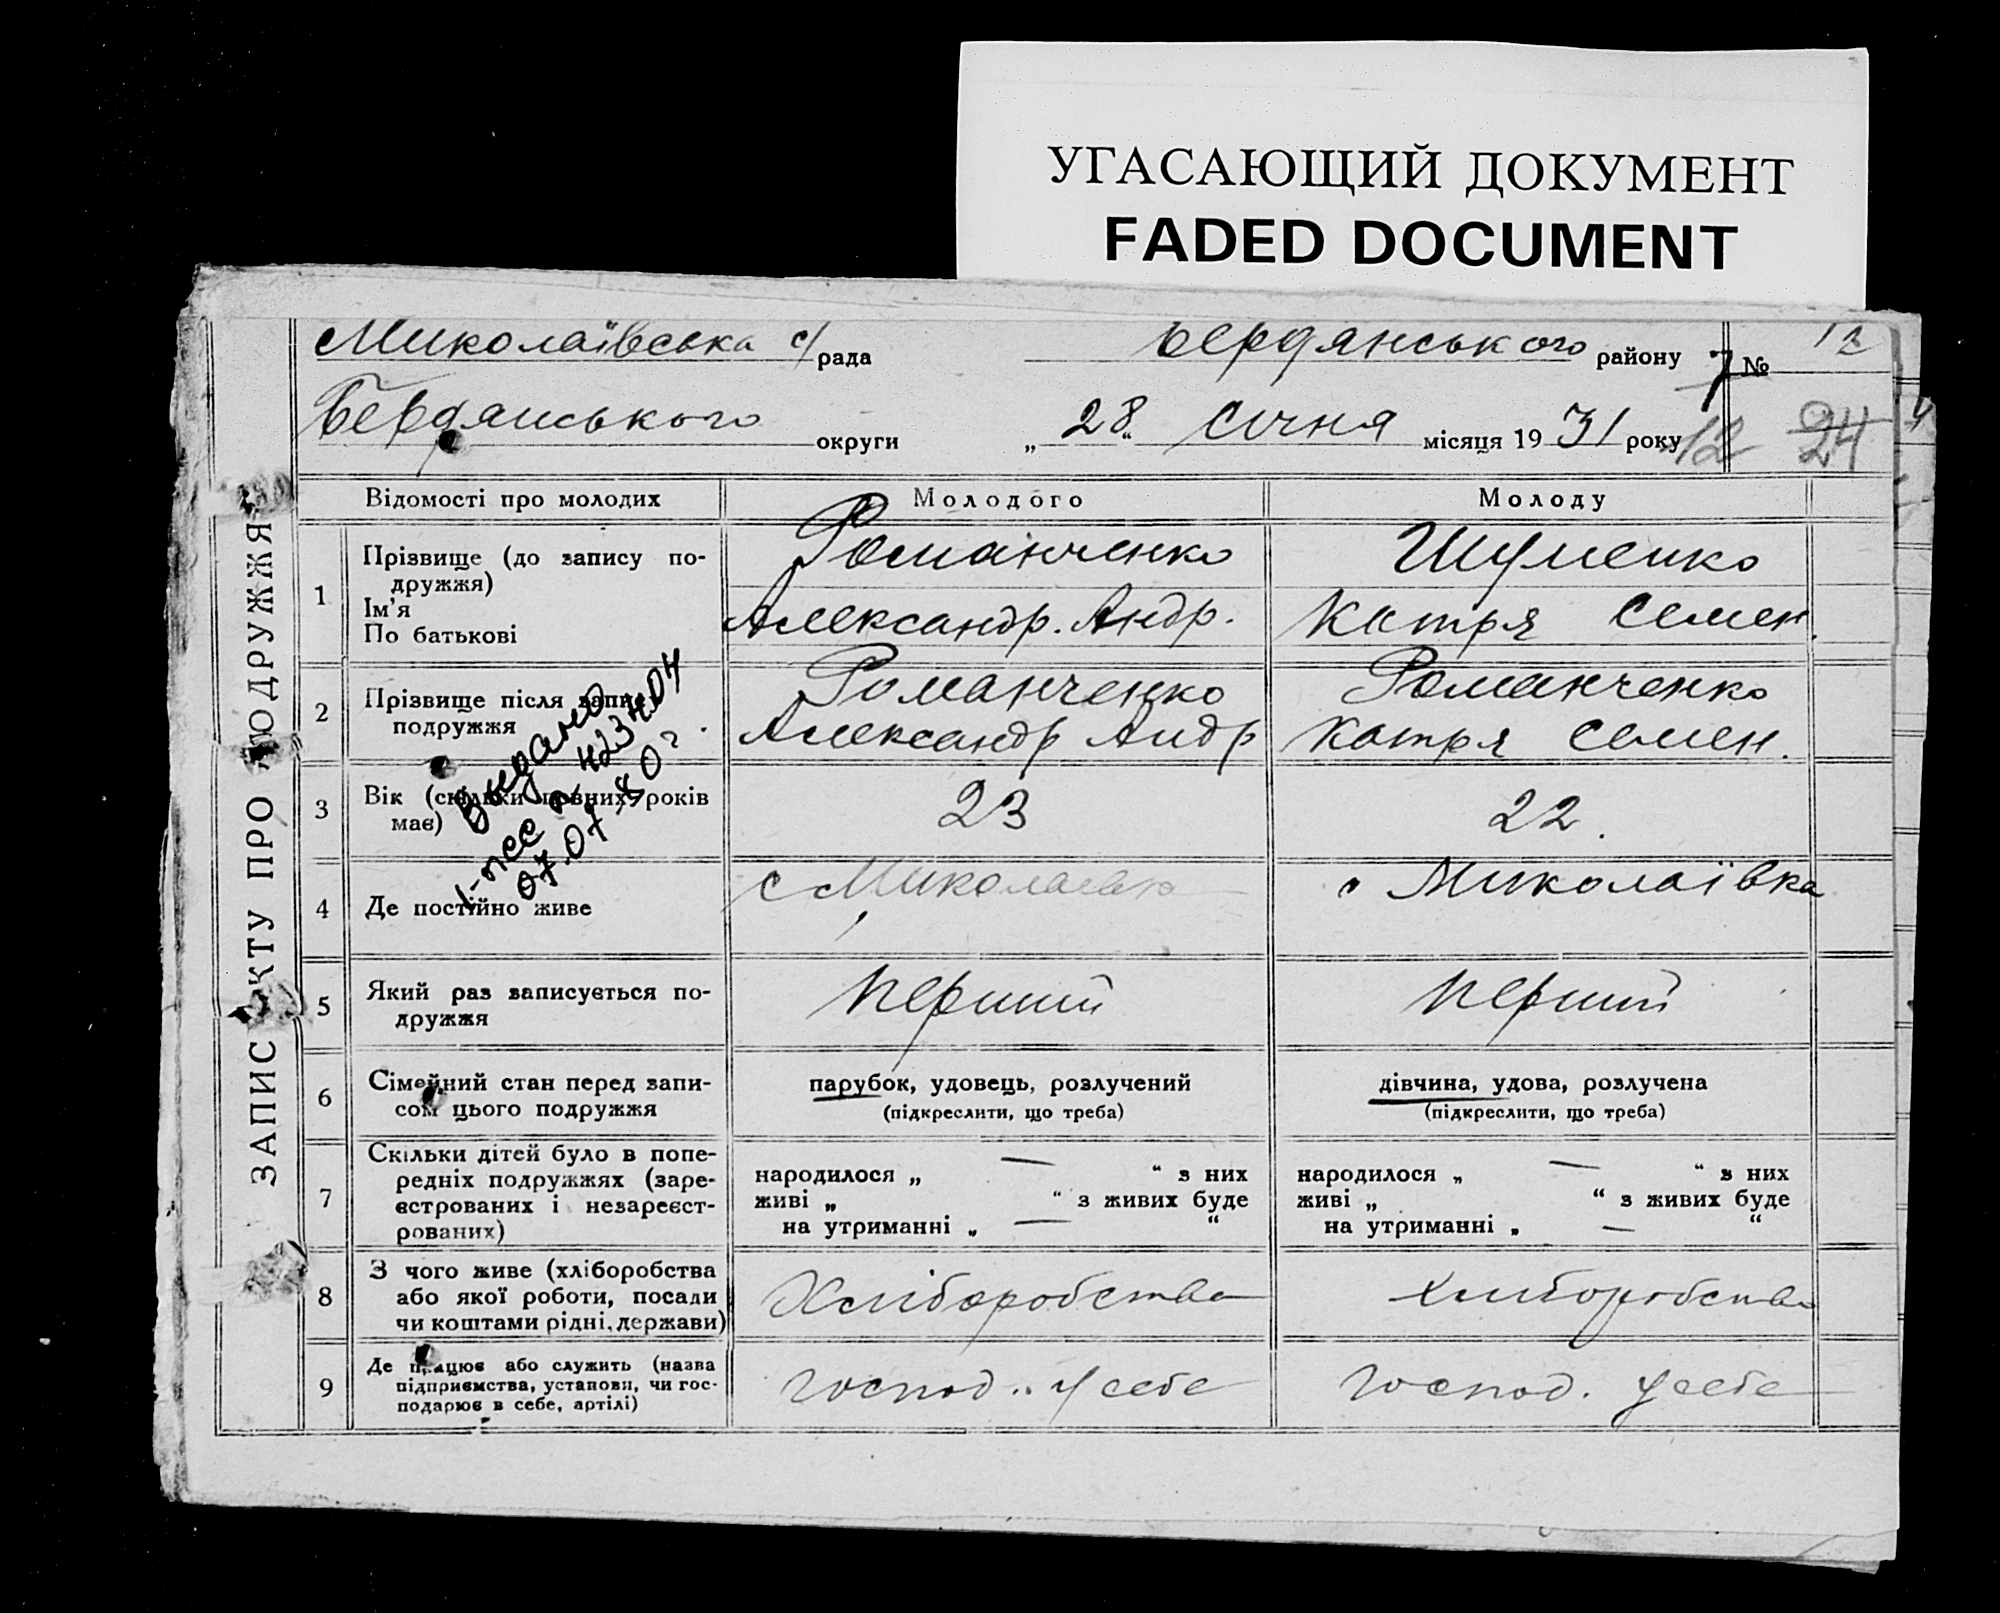 УГАСАЮЩИЙ ДОКУМЕНТ
FADED DOCUMENT
Миколаївська с/рада Бердянського району 7 № 12
Бердянського округи „28“ січня місяця 1931 року 12 24
ЗАПИС АКТУ ПРО ПОДРУЖЖЯ
Відомості про молодих Молодого Молоду
1 Прізвище (до запису по-
дружжя)
Ім'я
По батькові
Романченко
Александр. Андр.
Шуменко
Катря Семен.
2 Прізвище після запису
подружжя
Романченко
Александр Андр
Романченко
Катря Семен.
Выдано
07.07-80г.
3 Вік (скільки повних років
має)
23
22.
4 Де постійно живе
с Миколаевка
с Миколаївка
5 Який раз записується по-
дружжя
перший
перший
6 Сімейний стан перед запи-
сом цього подружжя
парубок, удовець, розлучений
(підкреслити, що треба)
дівчина, удова, розлучена
(підкреслити, що треба)
7 Скільки дітей було в попе-
редніх подружжях (заре-
єстрованих і незареєст-
рованих)
народилося „ — “ з них
живі „ “ з живих буде
на утриманні „ — “
народилося „ — “ з них
живі „ “ з живих буде
на утриманні „ — “
8 З чого живе (хліборобства
або якої роботи, посади
чи коштами рідні, держави)
Хліборобства
хліборобства
9 Де працює або служить (назва
підприємства, установи, чи гос-
подарює в себе, артілі)
господ.. у себе
господ. у себе